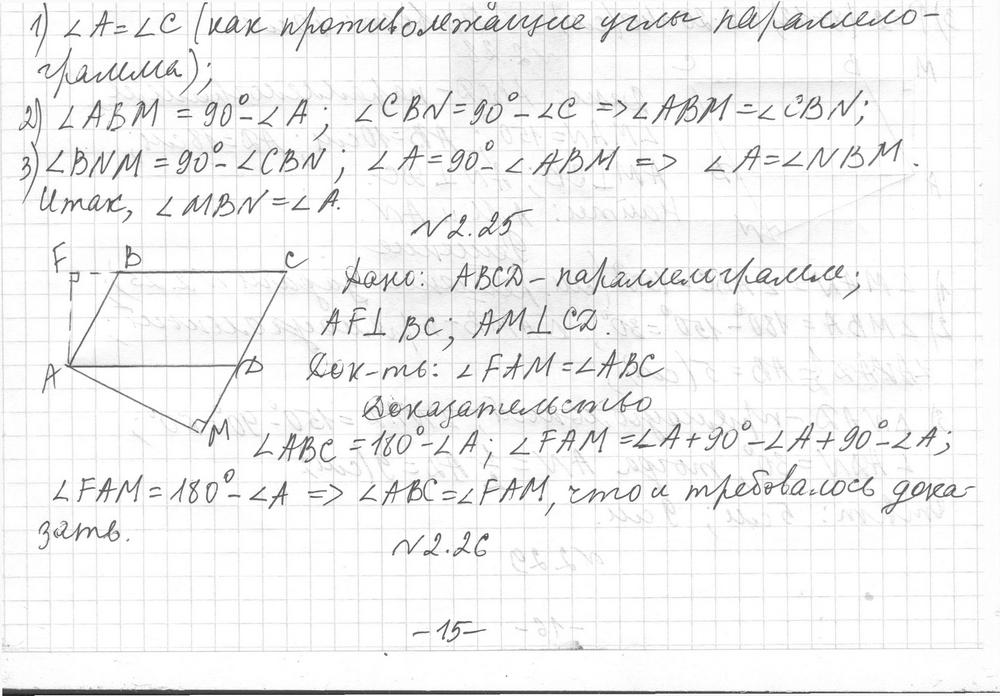 1) ∠A=∠C (как противолежащие углы параллело-
грамма);
2) ∠ABM = 90° - ∠A; ∠CBN = 90° - ∠C => ∠ABM = ∠CBN;
3) ∠BNM = 90° - ∠CBN; ∠A = 90° - ∠ABM => ∠A = ∠NBM.
Итак, ∠MBN = ∠A.
№2.25
F B C
Дано: ABCD - параллелограмм;
AF⊥BC; AM⊥CD.
A D
Док-ть: ∠FAM = ∠ABC
Доказательство
M
∠ABC = 180° - ∠A; ∠FAM = ∠A + 90° - ∠A + 90° - ∠A;
∠FAM = 180° - ∠A => ∠ABC = ∠FAM, что и требовалось дока-
зать.
№2.26
-15-